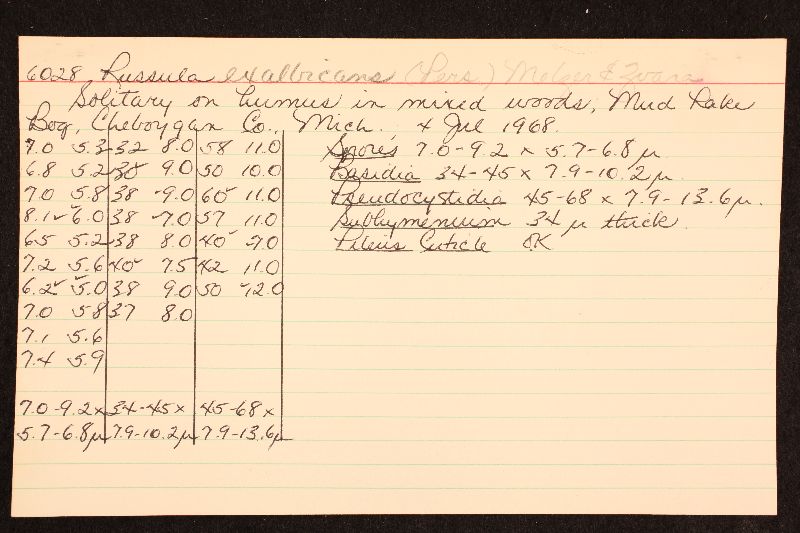 6028 Russula exalbicans (Pers.) Melzer & Zvara
Solitary on humus in mixed woods, Mud Lake
Bog, Cheboygan Co., Mich. 4 Jul 1968.
7.0 5.3 32 8.0 58 11.0 Spores 7.0-9.2 x 5.7-6.8 µ
6.8 5.2 35 9.0 50 10.0 Basidia 34-45 x 7.9-10.2 µ.
7.0 5.8 38 9.0 60 11.0 Pseudocystidia 45-68 x 7.9-13.6 µ.
8.1 6.0 38 7.0 57 11.0 Subhymenium 34 µ thick.
6.5 5.2 38 8.0 40 7.0 Pileus Cuticle OK
7.2 5.6 40 7.5 42 11.0
6.2 5.0 38 9.0 50 12.0
7.0 5.8 37 8.0
7.1 5.6
7.4 5.9
7.0-9.2 x 34-45 x 45-68 x
5.7-6.8 µ 7.9-10.2 µ 7.9-13.6 µ